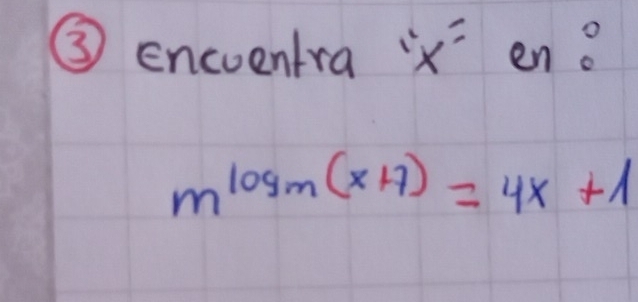 ③ Encuentra "x" en :
m^log m (x+7) = 4x + 1